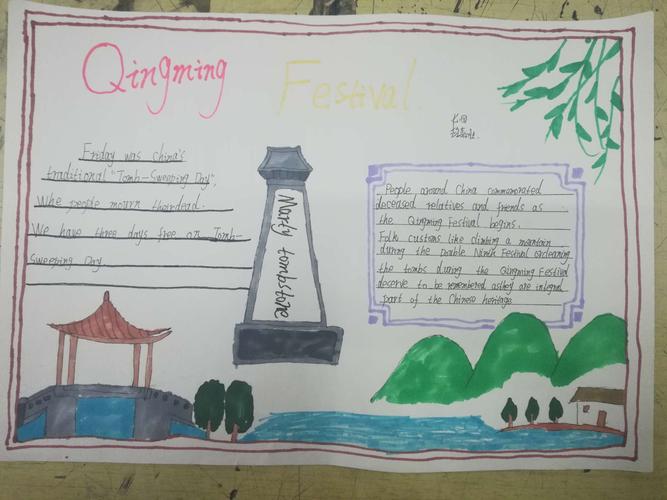 Qingming Festival.
Friday was china's
traditional "Tomb-Sweeping Day",
Whe people mourn theirdead.
We have three days free on Tomb-
Sweeping Day
Marty tombstone
People around China commemorated
deceased relatives and friends as
the Qingming Festival begins.
Folk customs like climbing a mountain
during the Double Ninth Festival orcleaning
the tombs during the Qingming Festival
deserve to be remembered asthey are integral
part of the Chinese heritage.